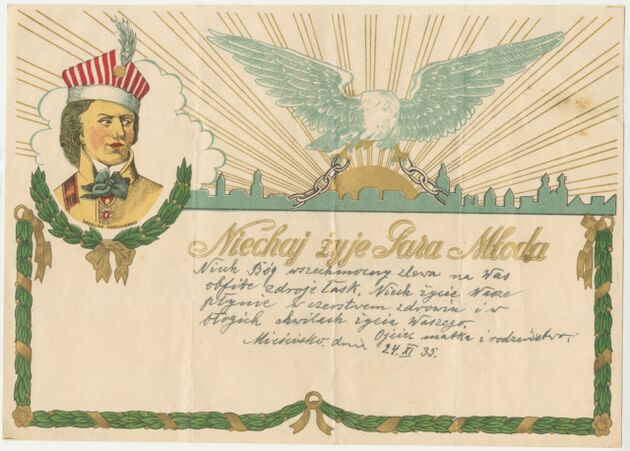 Niechaj żyje Para Młoda
Niech Bóg wszechmocny zlewa na Was
obfite zdroje łask. Niech życie Wasze
płynie w czerstwem zdrowiu i w
błogich chwilach życia Waszego.
Ojciec matka i rodzeństwo.
Mieścisko, dnia 24. XI 35.